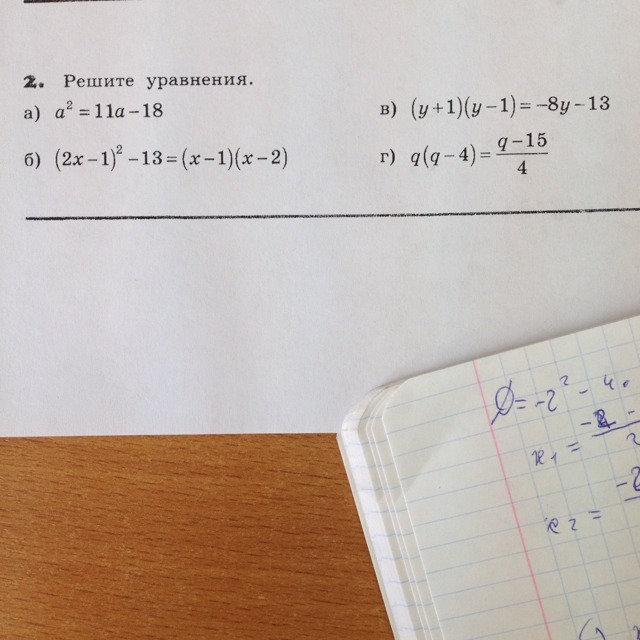 2. Решите уравнения.
а) a² = 11a – 18
в) (y+1)(y–1) = –8y – 13
б) (2x–1)² – 13 = (x–1)(x–2)
г) q(q–4) = (q–15)/4
D = -2² - 4.
x₁ =
x₂ =